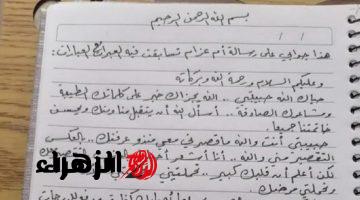 بسم الله الرحمن الرحيم
هذا جوابي على رسالة أم عزام تسابقت فيه العبرات العبارات:
وعليكم السلام ورحمة الله وبركاته
حياك الله حبيبتي .. الله يجزاك خير على كلماتك الطيبة
ومشاعرك الصادقة .. أسأل الله أن يتقبل منا ومنك ويحسن
خاتمتنا جميعا.
حبيبتي أنت والله ما قصرتي معي منذ عرفتك .. بالعكس
التقصير مني والله .. أنا أشعر
لكن أعلم أن قلبك كبير .. تحملتيني
وتحملتي مرضك.
الزهراء